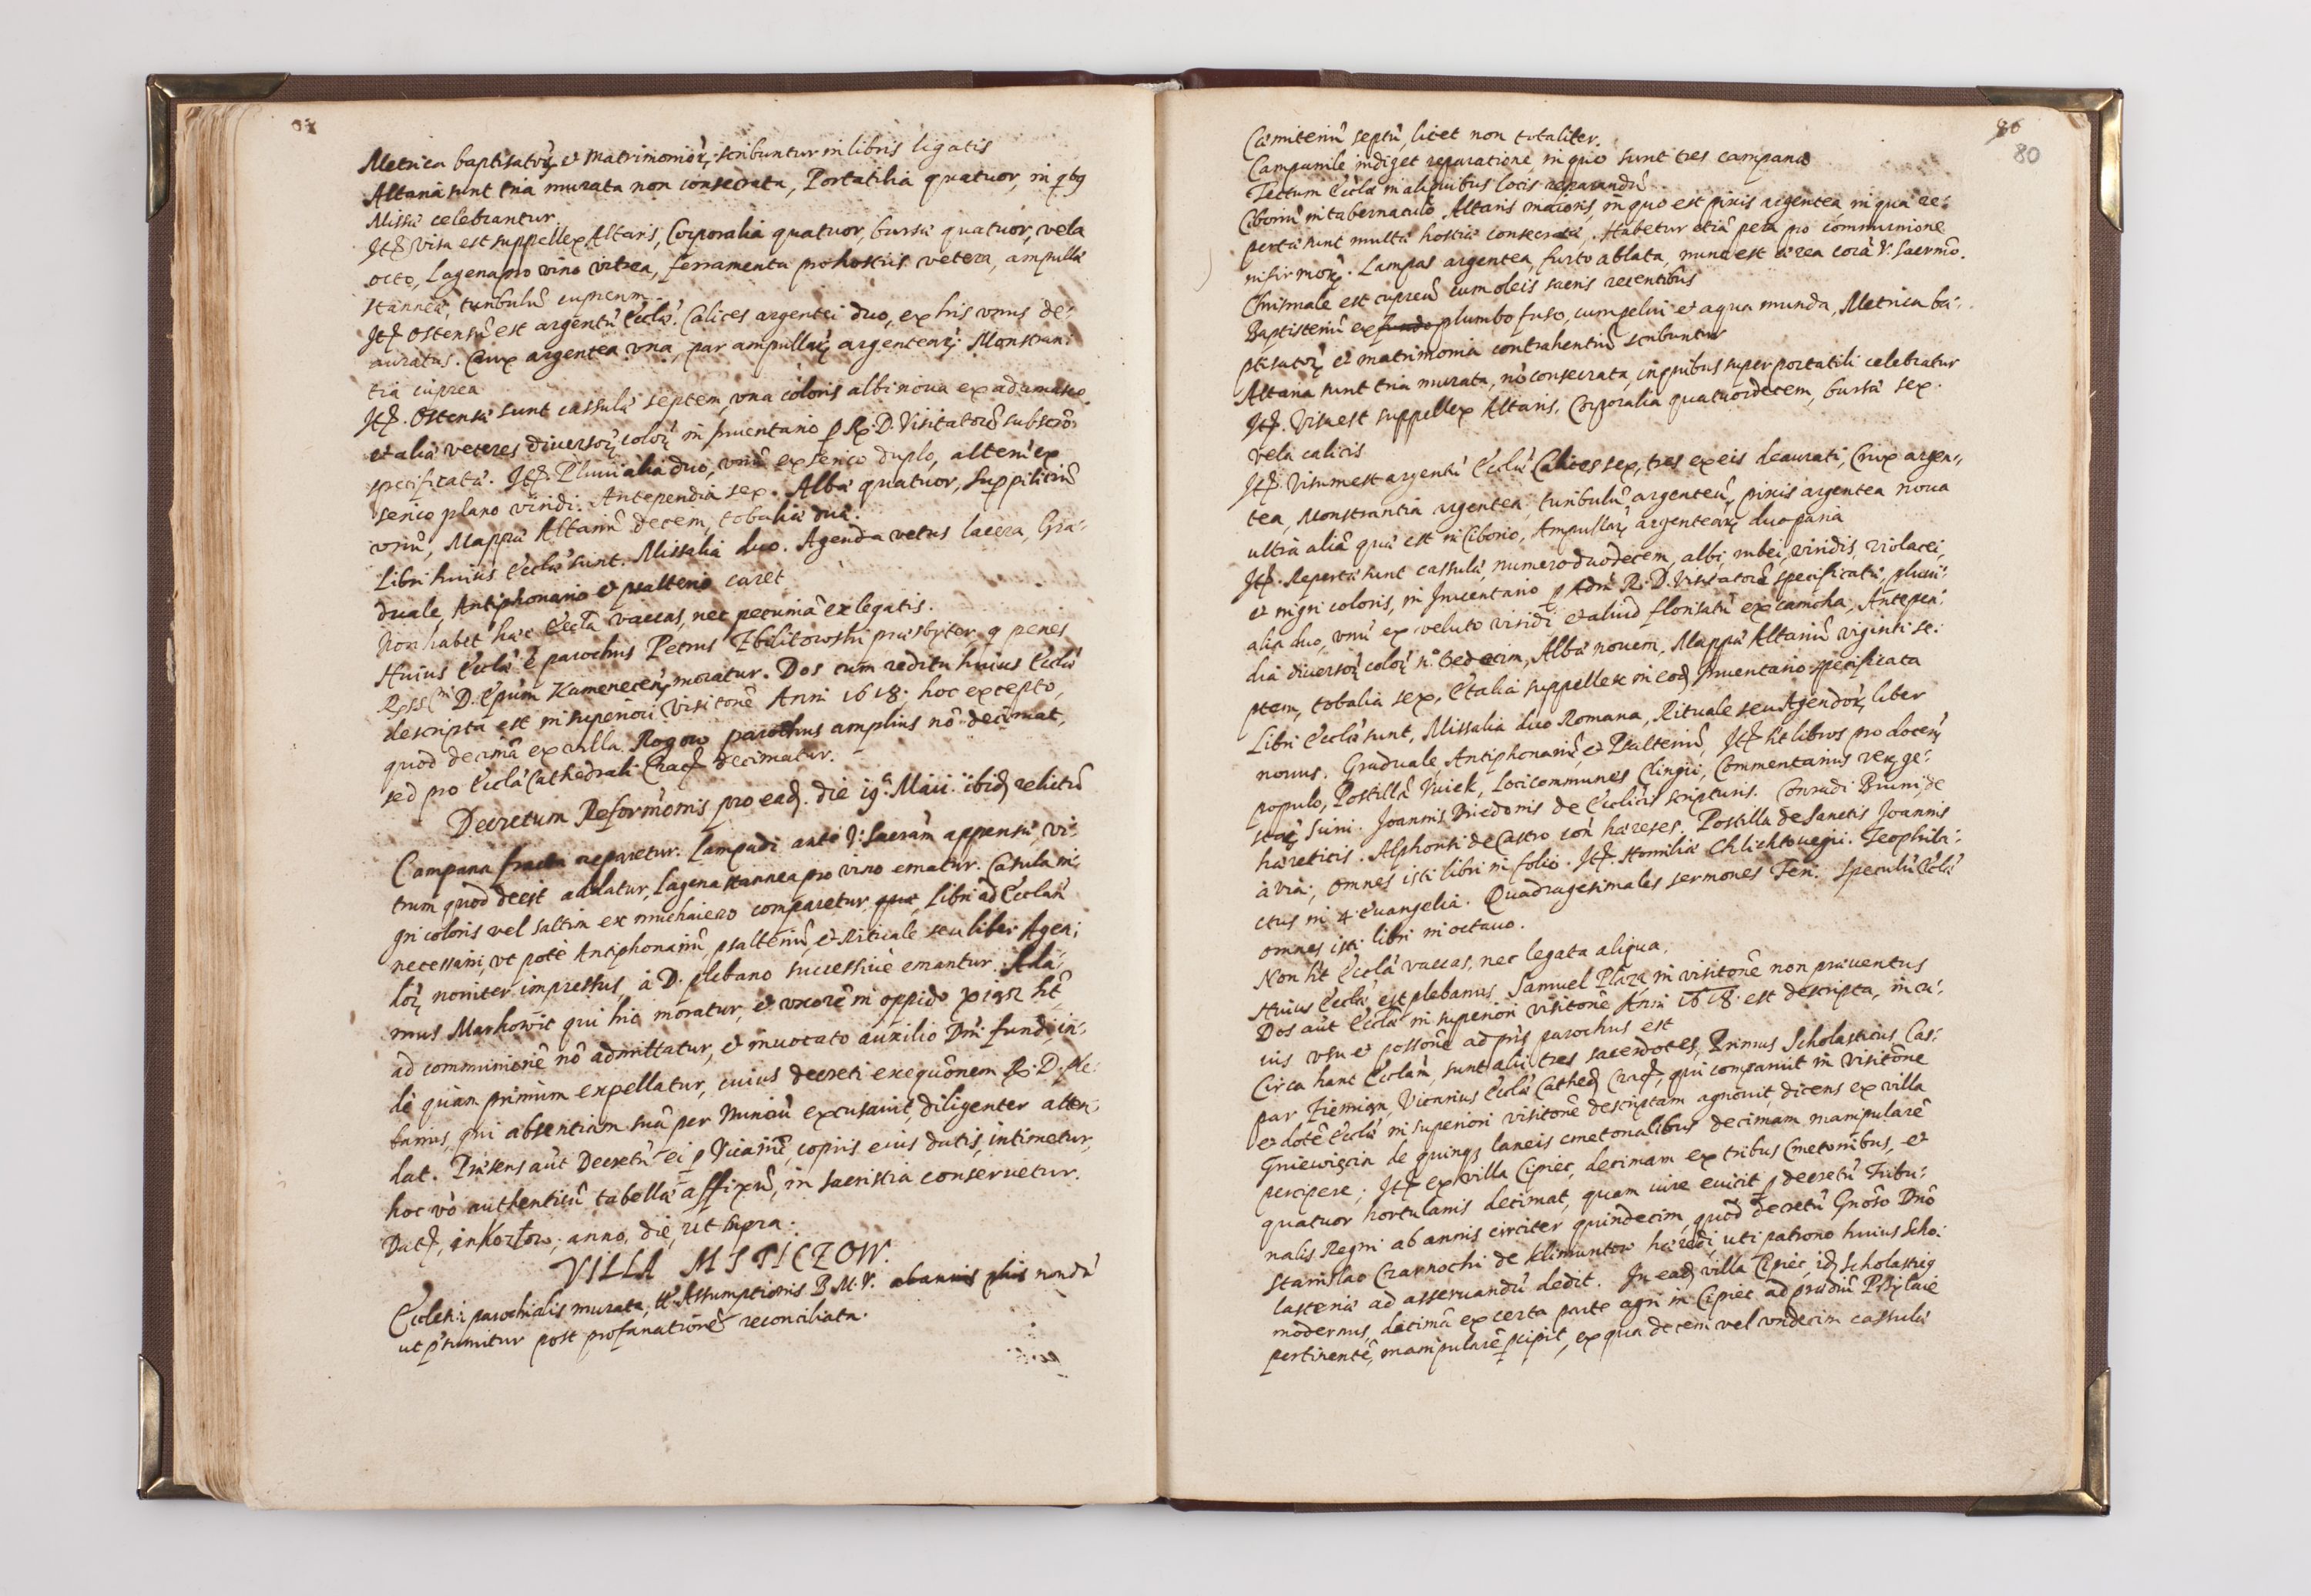 Metrica baptisatorũ et matrimoniorũ scribuntur in libris ligatis
Altaria sunt tria murata non consecrata, Portatilia quatuor, in qbq
Missæ celebrantur.
Itẽ visa est suppellex Altaris, Corporalia quatuor, bursæ quatuor, vela
octo, Lagena pro vino vitrea, ferramenta pro hostiis vetera, ampullæ
stanneæ, turibulũ cupreum.
Itẽ ostensũ est argentũ Ecclæ. Calices argentei duo, ex his vnus de:
auratus. Crux argentea vna, par ampullarũ argentearũ. Monstran:
tia cuprea
Itẽ. Ostensæ sunt cassulæ septem, vna coloris albi noua ex adamasco
et aliæ veteres diuersorũ colorũ in Inuentario p R. D. Visitatorẽ subscrõ:
specificatæ. Itẽ. Pluuialia duo, vnũ ex serico duplo, alterũ ex
serico plano viridi. Antependia sex. Albæ quatuor, Suppiliciũ
vnũ, Mappæ Altariũ decem, tobaliæ duæ.
Libri huius Ecclæ sunt. Missalia duo. Agenda vetus lacera, Gra:
duale, Antiphonario et psalterio caret
Non habet hæc Eccla vaccas, nec pecuniã ex legatis.
Huius Ecclæ ẽ parochus Petrus Zbilitowski præsbyter, q penes
D. Epũm Kamenecen̄ moratur. Dos cum reditu huius Ecclæ
descripta est in superiori visitõne Anni 1618. hoc excepto,
quod decimã ex villa Rogow parochus amplius nõ decimat,
sed pro Eccla Cathedrali Crac̄ decimatur.
Decretum Reformõnis pro eadẽ. die 19ᵃ Maii ibidẽ relictũ
Campana fracta reparetur. Lampadi ante V: Sacram̃ appensæ, vi:
trum quod deest addatur, Lagena stannea pro vino ematur. Casula ni:
gri coloris vel saltim ex muchaiero comparetur, Libri ad Ecclãm
necessarii, vt poté Antiphonariũ, psalteriũ, et Rituale seu liber Agen:
dorũ nouiter impressus, à D. plebano successiuè emantur. Ada:
mus Markowic qui hic moratur, et vxorẽ in oppido hẽt
ad communionẽ nõ admittatur, et inuocato auxilio Dñi fundi, in:
dè quàm primùm expellatur, cuius decreti exequõnem R. D. Ple:
banus, qui absentiam suã per Nunciũ excusauit, diligenter atten:
dat. Præsens aũt Decretũ ei p Vicariũ, copiis eius datis, intimetur,
hoc vò authenticũ tabellæ affixũ, in sacristia conseruetur.
Datẽ, in Kozłow, anno, die, ut supra.
VILLA MSTICZOW.
Ecclesia parochialis murata, tt̃ Assumptionis B.M.V. ab annis nondũ
ut p̃sumitur post profanationẽ reconciliata.
86
80
Cæmiteriũ septũ, licet non totaliter.
Campanile indiget reparatione, in quo sunt tres campanæ
Tectum Ecclæ in aliquibus locis reparandũ
Ciboriũ in tabernaculo Altaris maioris, in quo est pixis argentea, in qua re:
pertæ sunt multæ hostiæ consecratæ. Habetur etiã pera pro communione
infirmorũ. Lampas argentea, furto ablata, nunc est ærea corã V. Sacrmõ.
Chrismale est cupreũ cum oleis sacris recentibus
Baptisteriũ ex fundo plumbo fuso, cum pelui et aqua munda, Metrica ba:
ptisatorũ et matrimonia contrahentiũ scribuntur
Altaria sunt tria murata, nõ consecrata, in quibus super portatili celebratur
Itẽ. Visa est suppellex Altaris. Corporalia quatuordecem, bursæ sex.
vela calicis
Itẽ. Visum est argentũ Ecclæ Calices sex, tres ex eis deaurati, Crux argen:
tea, Monstrantia argentea, turibulũ argenteũ, pixis argentea noua
ultra aliã quæ est in Ciborio, Ampullarũ argentearũ duo paria
Itẽ. Repertæ sunt cassulæ, numero duodecem, albi, rubei, viridis, violacei,
et nigri coloris, in Inuentario p Adm̃ R. D. Visitatorẽ specificatæ, pluui:
alia duo, vnũ ex veluto viridi et aliud florisatũ ex camcha, Antepen:
dia diuersorũ colorũ nº sedecim, Albæ nouem, Mappæ Altariũ viginti se:
ptem, tobalia sex. Et alia suppellex in eodẽ Inuentario specificata
Libri Ecclæ sunt, Missalia duo Romana, Rituale seu Agendorũ liber
nouus. Graduale, Antiphonariũ, et Psalteriũ, Itẽ hẽt libros pro docen̄
populo, Postillã Vuiek, Loci communes Clingii, Commentarius rerũ ge:
starũ Surii. Joannis Driedonis de Ecclicis scripturis. Conradi Bruni de
hæreticis. Alphonsi de Castro con̄ hæreses. Postilla de Sanctis Joannis
à via, omnes isti libri in folio. Itẽ. Homiliæ Chlichtouegii. Teophila:
ctus in 4. Euangelia. Quadragesimales sermones Fen. Speculũ Ecclæ
omnes isti libri in octauo.
Non hẽt Eccla vaccas, nec legata aliqua.
Huius Ecclæ est plebanus Samuel Plaza in visitõne non præuentus
Dos aũt Ecclæ in superiori visitõne Anni 1618. est descripta, in cu:
ius vsu et possõne ad p̃ns parochus est
Circa hanc Ecclãm, sunt alii tres sacerdotes, Primus Scholasticus, Cas:
par Ziemian, Vicarius Ecclæ Cathed̃ Crac̄, qui comparuit in visitõne
et dotẽ Ecclæ in superiori visitõne descriptam agnouit, dicens ex villa
Gniewięcin de quinq; laneis cmetonalibus decimam manipularẽ
percipere; Itẽ ex villa Cipiec, decimam ex tribus Cmetonibus, et
quatuor hortulanis decimat, quam iure euicit p decretũ Tribu:
nalis Regni ab annis circiter quindecim, quod decretũ Gnõso Dnõ
Stanislao Czarnochi de Klimuntow hæredi, uti patrono huius Scho:
lasteriæ ad asseruandũ dedit. In eadẽ villa Cipiec, idẽ Scholasticq
modernus, decimã ex certa parte agri in Cipiec ad prædiũ Przylaie
pertinentẽ, manipularẽ pcipit, ex qua decem vel vndecim cassulæ